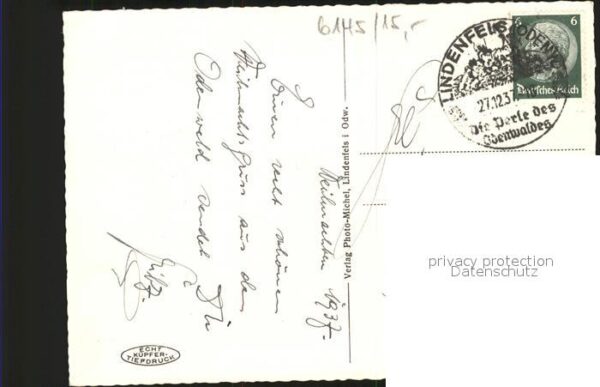 6145/15,-
LINDENFELS (ODENW
27.12.37
Die Perle des
Odenwaldes
6 6
Deutsches Reich
Weihnachten 1937.
Einen recht schönen
Weihnachtsgruss aus dem
Odenwald sendet Dir
Fritz.
Verlag Photo-Michel, Lindenfels i Odw.
ECHT
KUPFER-
TIEFDRUCK
privacy protection
Datenschutz